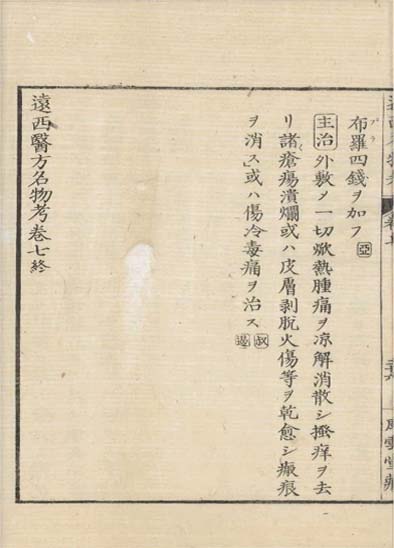 布羅四錢ヲ加フ 亞
主治 外敷メ一切焮熱腫痛ヲ凉解消散シ搔痒ヲ去
リ諸瘡瘍潰爛或ハ皮層剥脱火傷等ヲ乾愈シ瘢痕
ヲ消ス或ハ傷冷毒痛ヲ治ス 叔
遠西醫方名物考卷七終